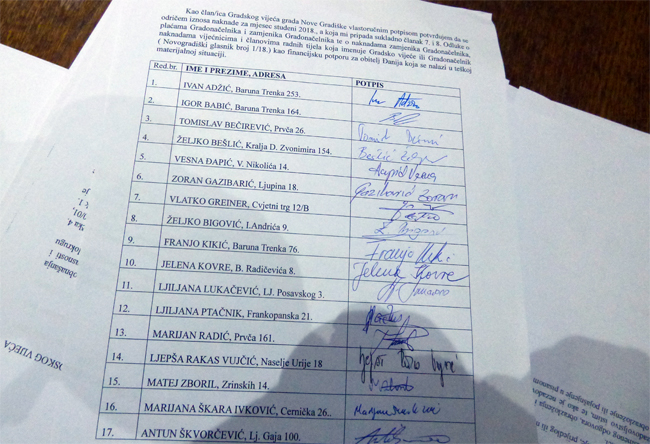 Kao član/ica Gradskog vijeća grada Nove Gradiške vlastoručnim potpisom potvrđujem da se
odričem iznosa naknade za mjesec studeni 2018., a koja mi pripada sukladno članak 7. i 8. Odluke o
plaćama Gradonačelnika i zamjenika Gradonačelnika te o naknadama zamjenika Gradonačelnika,
naknadama vijećnicima i članovima radnih tijela koja imenuje Gradsko vijeće ili Gradonačelnik
( Novogradiški glasnik broj 1/18.) kao financijsku potporu za obitelj Danija koja se nalazi u teškoj
materijalnoj situaciji.
Red.br. IME I PREZIME, ADRESA POTPIS
1. IVAN ADŽIĆ, Baruna Trenka 253.
2. IGOR BABIĆ, Baruna Trenka 164.
3. TOMISLAV BEČIREVIĆ, Prvča 26.
4. ŽELJKO BEŠLIĆ, Kralja D. Zvonimira 154.
5. VESNA ĐAPIĆ, V. Nikolića 14.
6. ZORAN GAZIBARIĆ, Ljupina 18. Gazibarić Zoran
7. VLATKO GREINER, Cvjetni trg 12/B
8. ŽELJKO BIGOVIĆ, I.Andrića 9.
9. FRANJO KIKIĆ, Baruna Trenka 76. Franjo
10. JELENA KOVRE, B. Radičevića 8. Jelena Kovre
11. LJILJANA LUKAČEVIĆ, LJ. Posavskog 3.
12. LJILJANA PTAČNIK, Frankopanska 21.
13. MARIJAN RADIĆ, Prvča 161.
14. LJEPŠA RAKAS VUJČIĆ, Naselje Urije 18
15. MATEJ ZBORIL, Zrinskih 14.
16. MARIJANA ŠKARA IVKOVIĆ, Cernička 26..
17. ANTUN ŠKVORČEVIĆ, Lj. Gaja 100.
OSKOG VIJEĆA